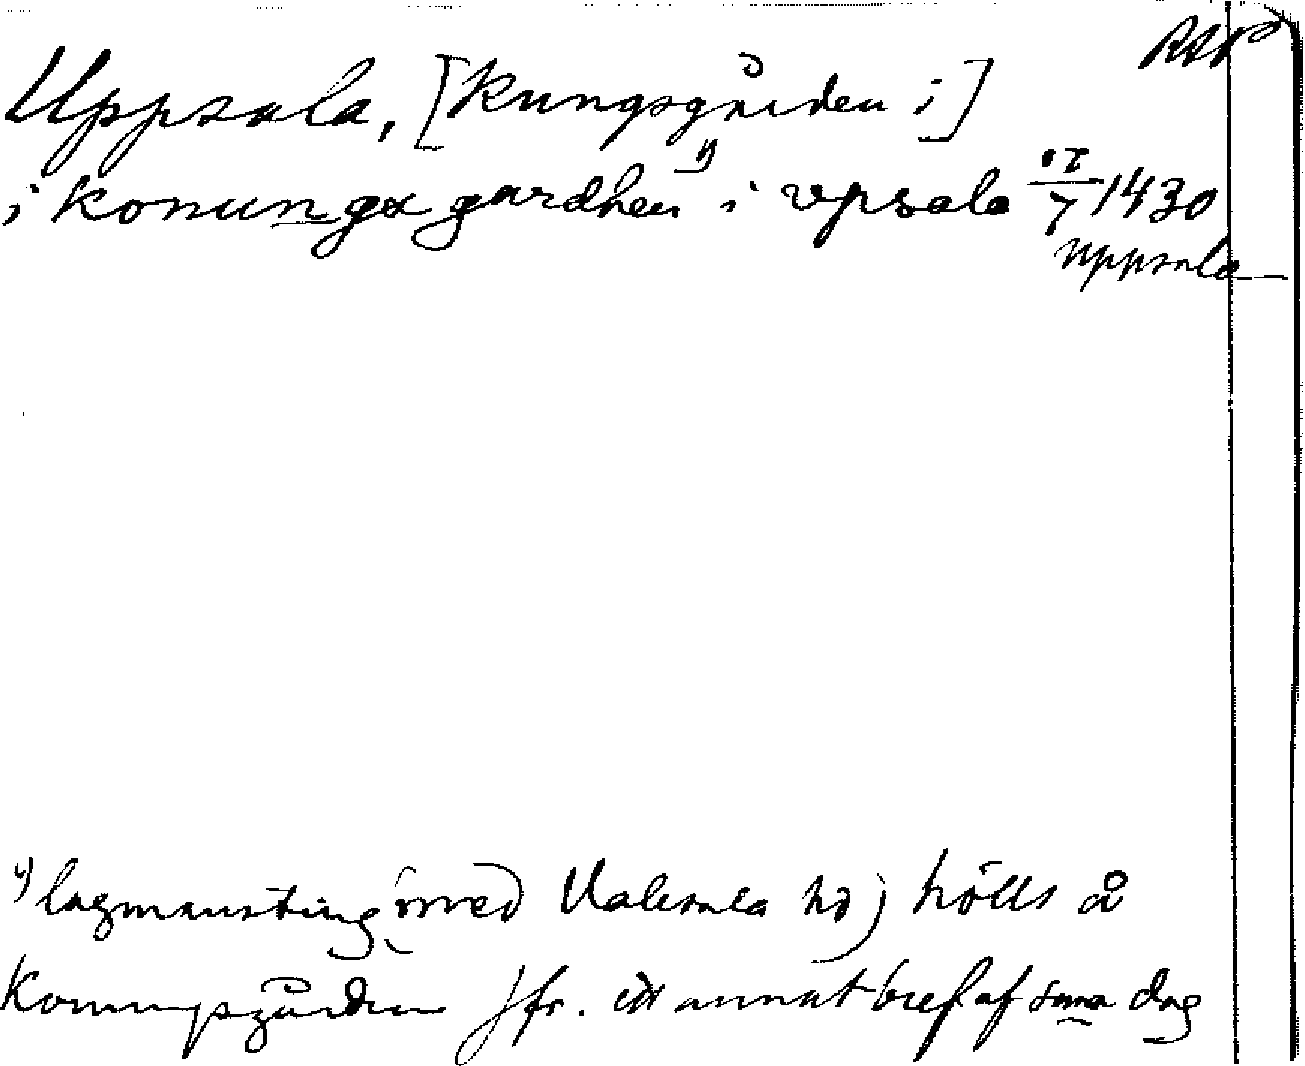 RAP
Uppsala, [Kungsgården i]
i konungx gardhen 1) i vpsala /7 1430
Uppsala
1) lagmansting (med Valsmla hd) hölls å
Konungsgården Jfr. ett annat bref af sama dag